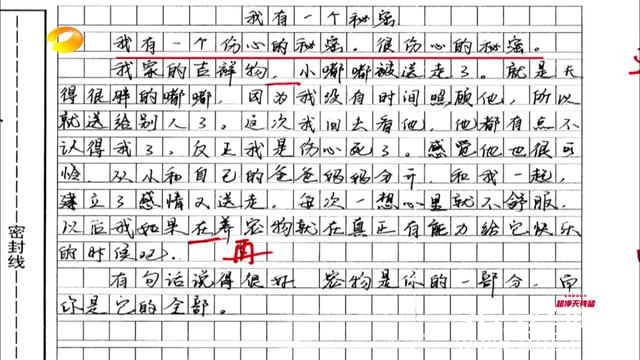 我有一个秘密
我有一个伤心的秘密。很伤心的秘密。
我家的吉祥物,小嘟嘟被送走了。就是天
得很胖的嘟嘟,因为我没有时间照顾他,所以
就送给别人了。这次我回去看他,他都有点不
认得我了,反正我是伤心死了。感觉他也很可
怜,从小和自己的爸爸妈妈分开,和我一起,
建立了感情又送走。每次一想心里就不舒服,
以后我如果在养宠物就在真正有能力给它快乐
的时候吧。
再
有句话说得很好 宠物是你的一部分,而
你是它的全部。
密封线
超净天残留